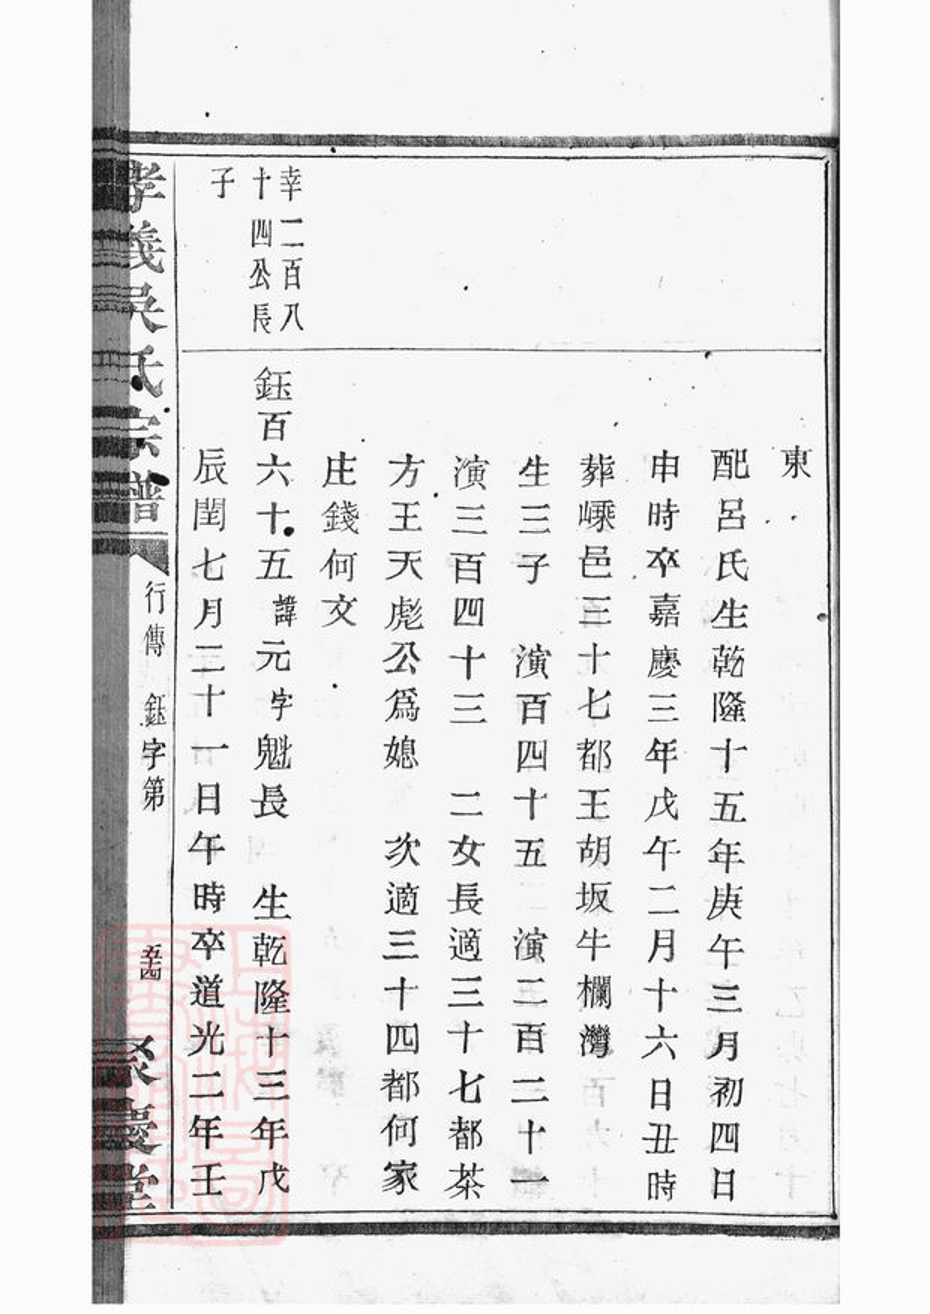 東
配呂氏生乾隆十五年庚午三月初四日
申時卒嘉慶三年戊午二月十六日丑時
葬嵊邑三十七都王胡坂牛欄灣
生三子　演百四十五　演二百二十一
演三百四十三　二女長適三十七都茶
方王天彪公爲媳　次適三十四都何家
庄錢何文
幸二百八
十四公長
子
鈺百六十五諱元字魁長　生乾隆十三年戊
辰閏七月二十一日午時卒道光二年壬
孝義吳氏宗譜　行傳　鈺字第　五四　聚慶堂